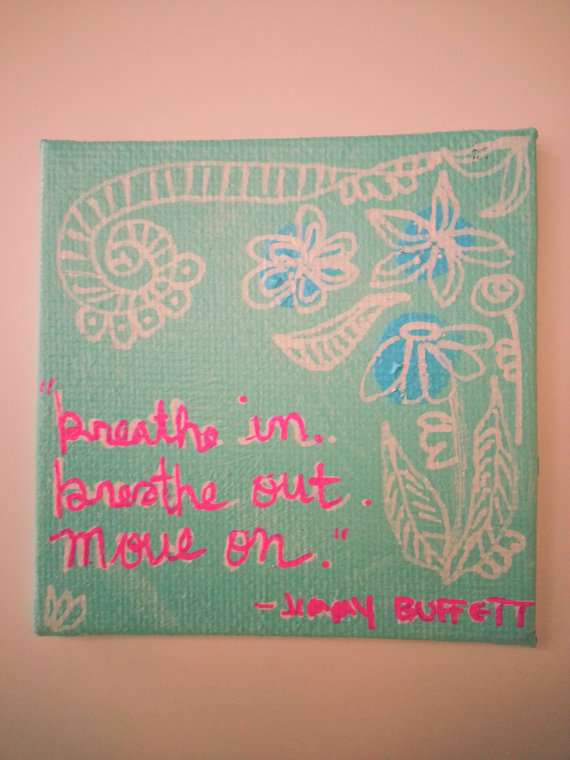 "breathe in.
breathe out.
move on."
-JIMMY BUFFETT